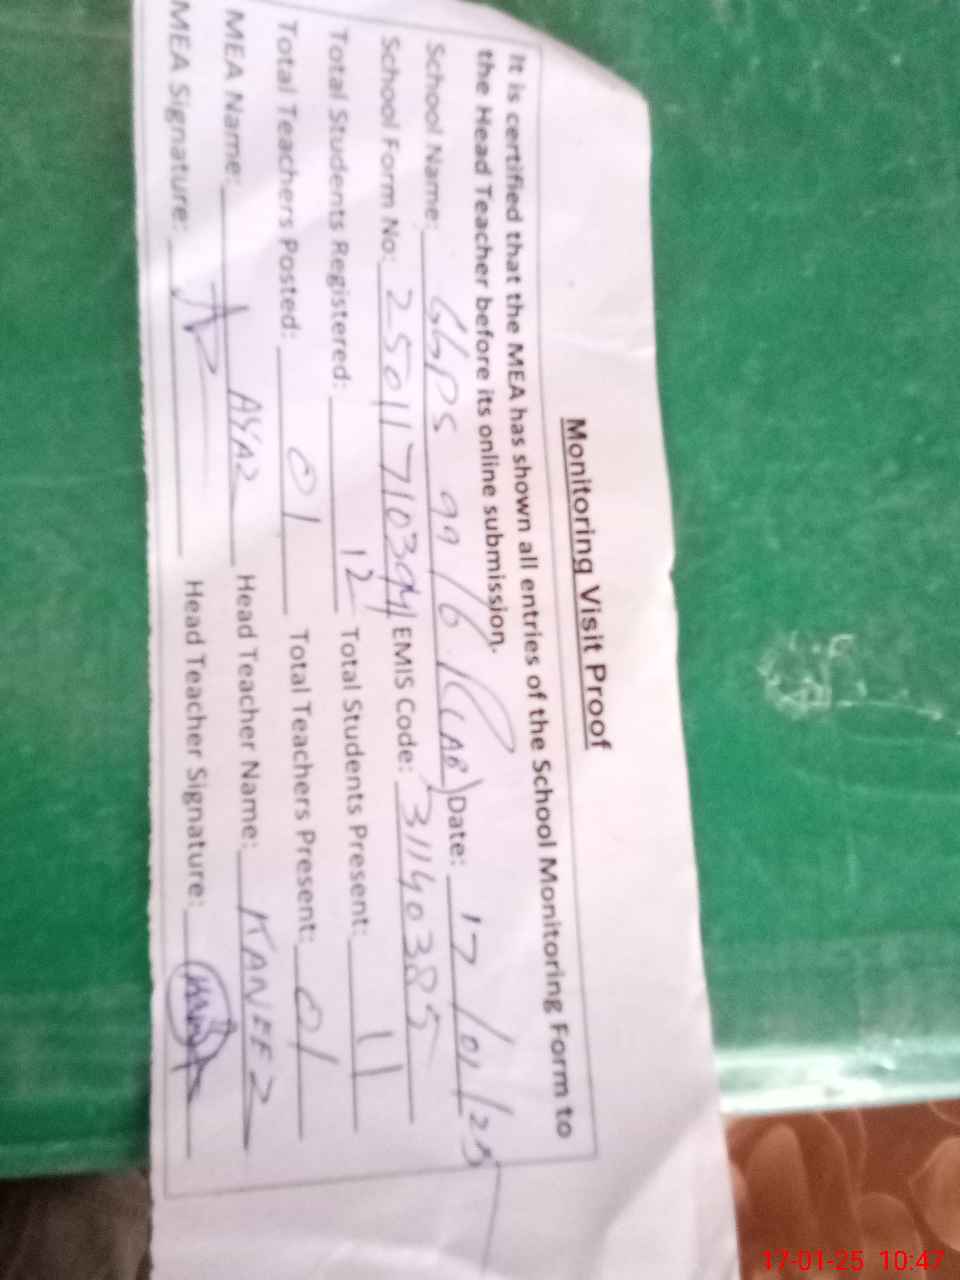 Monitoring Visit Proof
It is certified that the MEA has shown all entries of the School Monitoring Form to
the Head Teacher before its online submission.
School Name: GGPS 99/6.R(AB) Date: 17/01/25
School Form No: 25011710394 EMIS Code: 31140385
Total Students Registered: 12 Total Students Present: 11
Total Teachers Posted: 01 Total Teachers Present: 01
MEA Name: AYAZ Head Teacher Name: KANEEZ
MEA Signature: Head Teacher Signature:
17-01-25 10:47